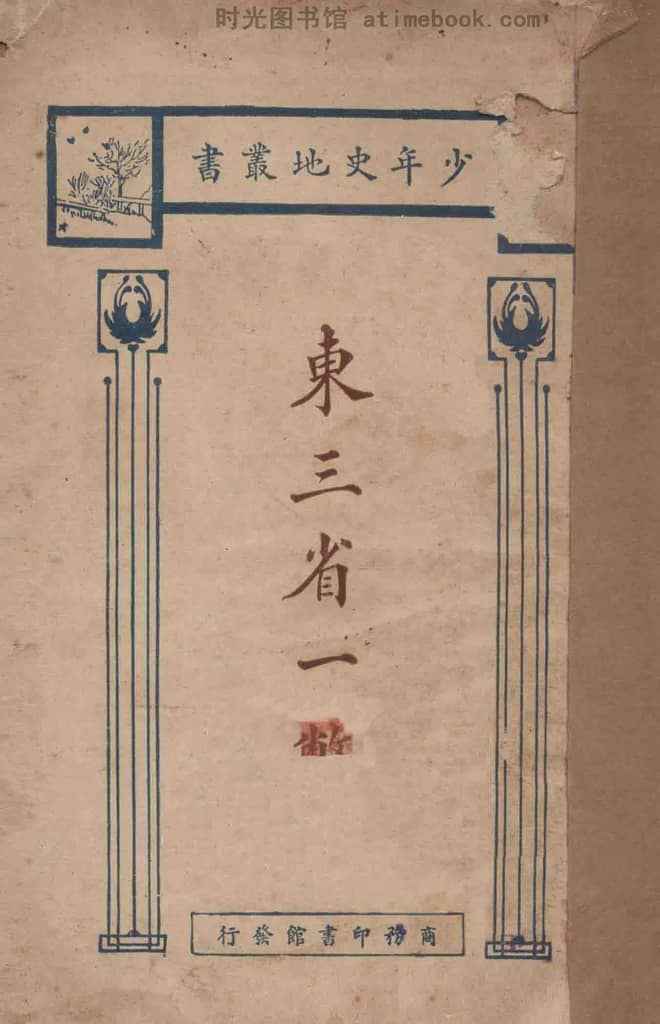 时光图书馆 atimebook.com
少年史地叢書
東三省一
商務印書館發行